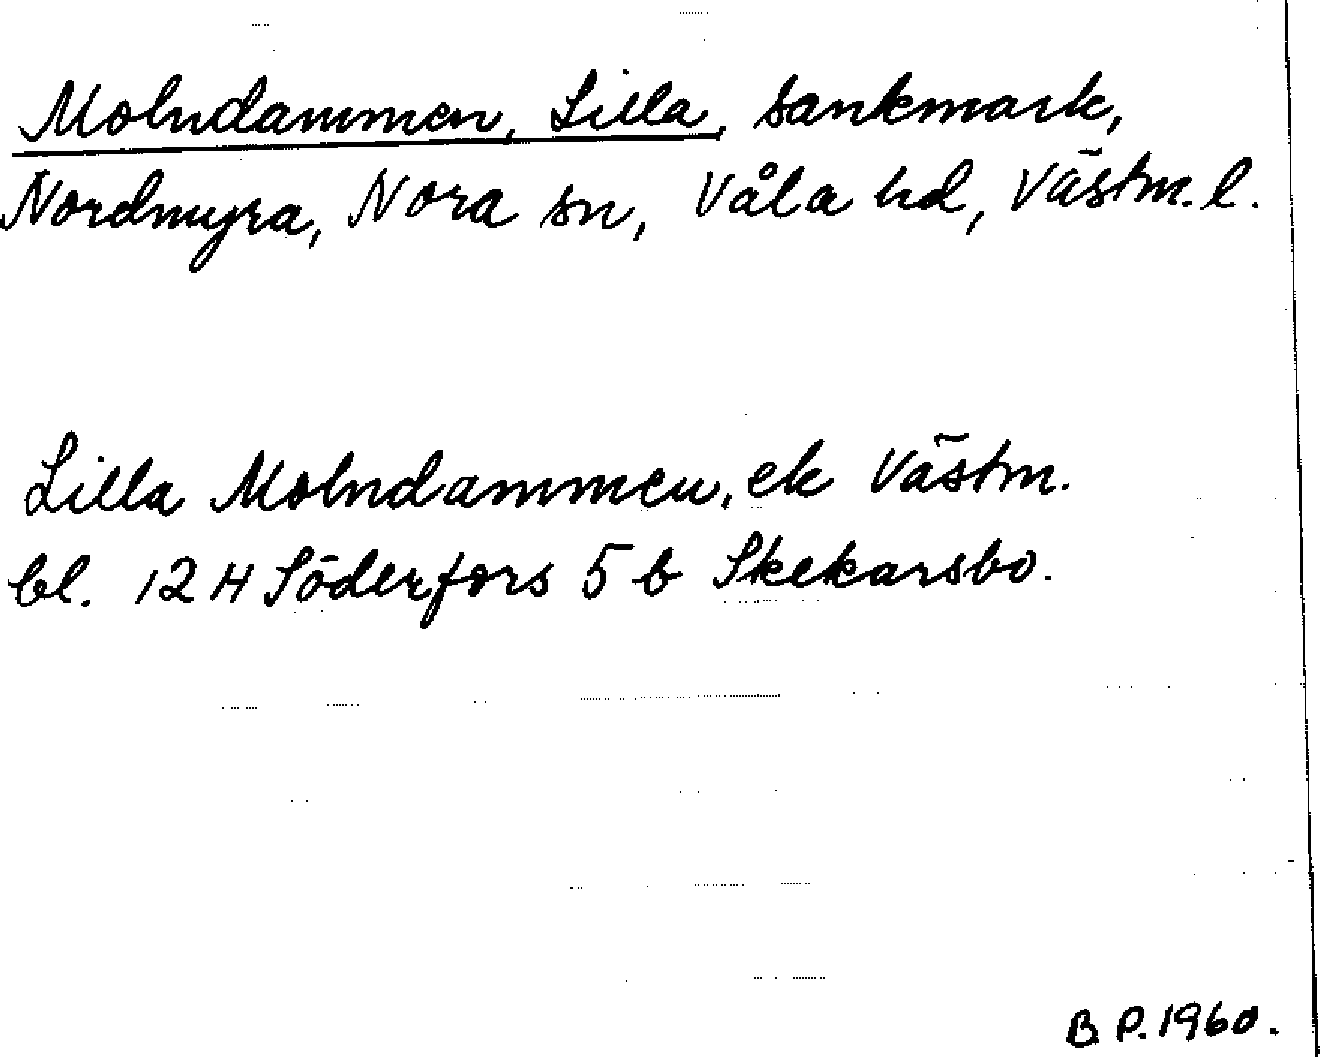 Molndammen, Lilla, sankmark,
Nordmyra, Nora sn, Våla hd, Västm. l.
Lilla Molndammen, ek Västm.
bl. 12 H Söderfors 5 b Skekarsbo.
B P. 1960.